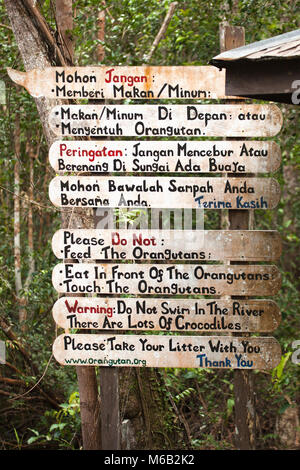 Mohon Jangan:
• Memberi Makan/Minum;
• Makan/Minum Di Depan: atau
• Menyentuh Orangutan.
Peringatan: Jangan Mencebur Atau
Berenang Di Sungai Ada Buaya
Mohon Bawalah Sampah Anda
Bersama Anda. Terima Kasih
Please Do Not:
• Feed The Orangutans
• Eat In Front Of The Orangutans
• Touch The Orangutans.
Warning: Do Not Swim In The River
There Are Lots Of Crocodiles
Please Take Your Litter With You
www.Orangutan.Org Thank You
alamy
M6B2K2